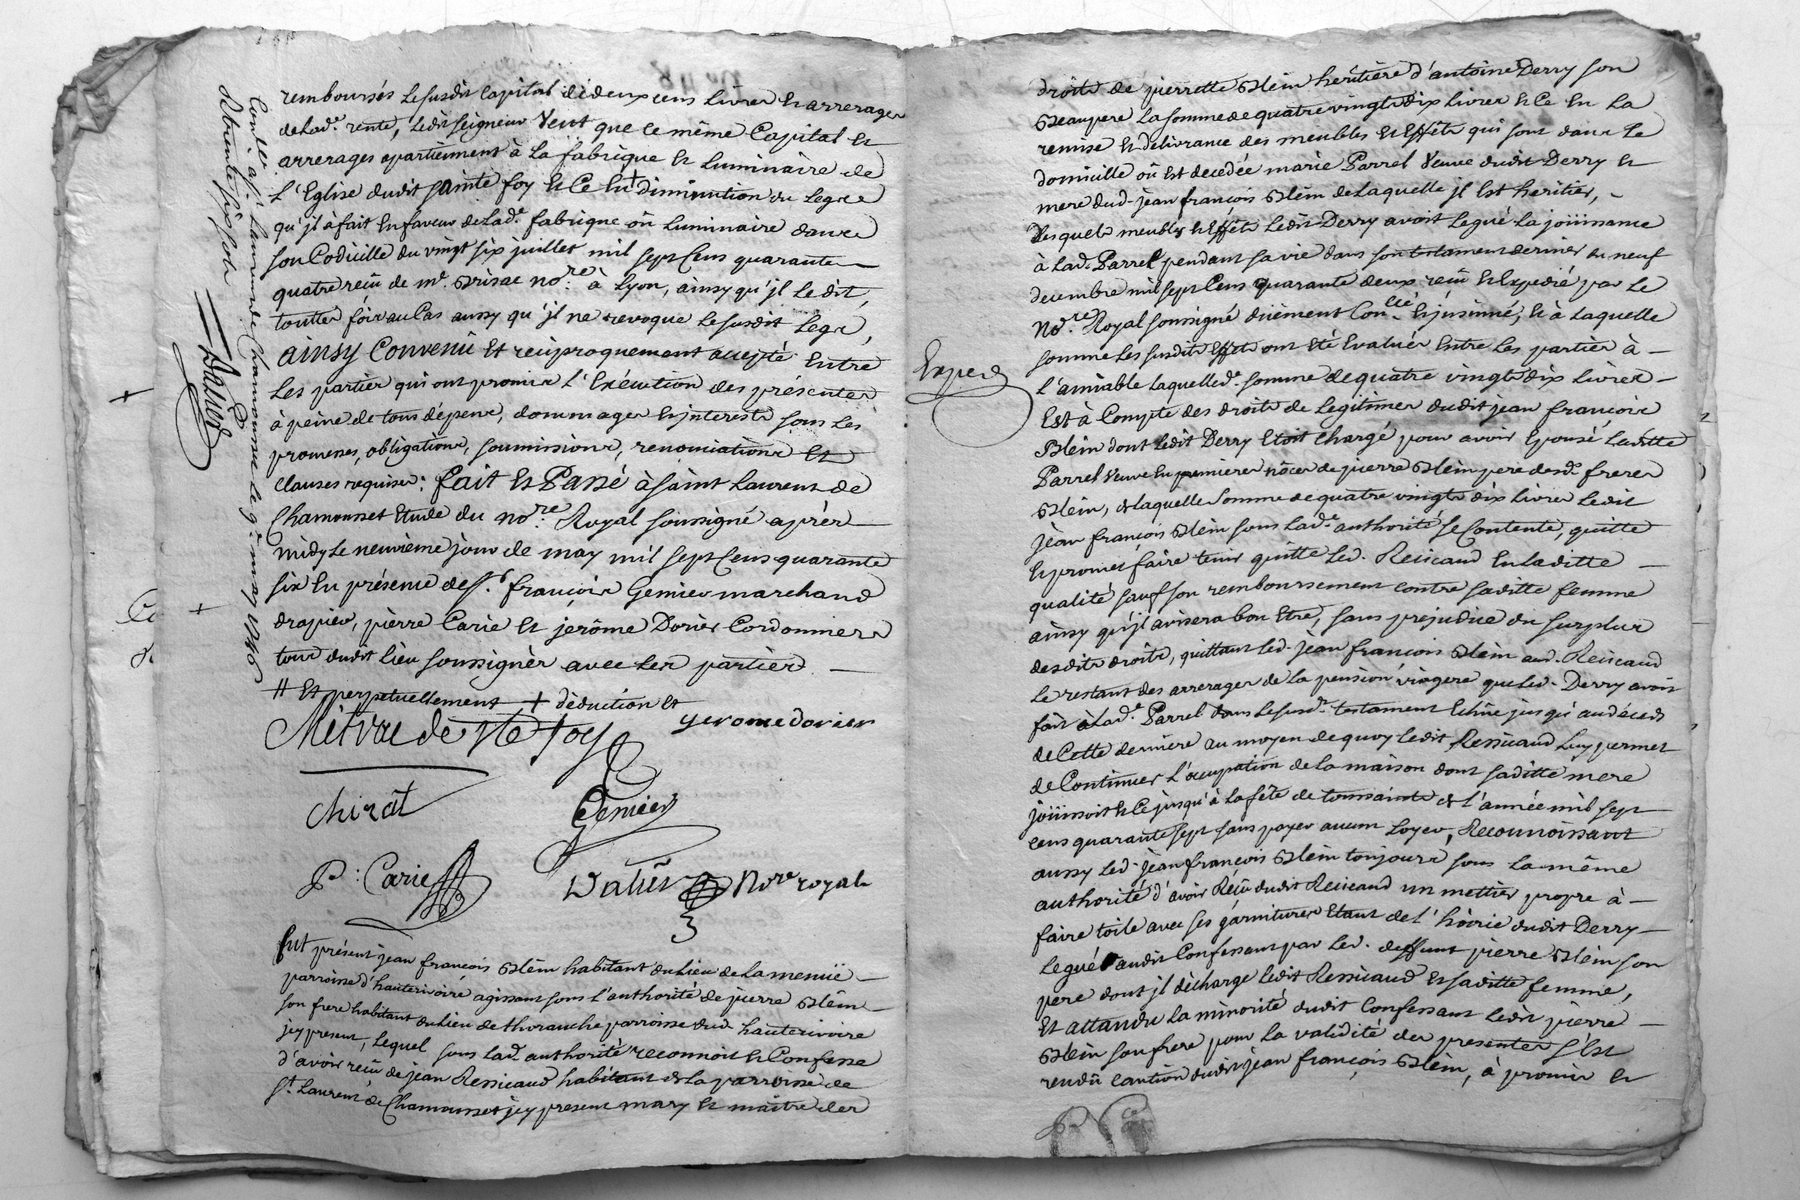 remboursés le susdit Capital de deux cens livres et arrerages
de lad.e rente, ledit seigneur Veut que ce même Capital et
arrerages apartiennent à la fabrique et luminaire de
L'Eglise dudit sainte foy et Ce En + diminution du legat
qu'jl à fait En faveur de lad.e fabrique où luminaire dans
son Codicille du vingt six juillet mil sept Cens quarante
quatre reçû de m.r no.re à Lyon, ainsy qu'jl le dit,
touttes fois au Cas aussy qu'jl ne revoque le susdit Legat,
ainsy Convenû Et reciproquement accepté Entre
Les parties qui ont promis L'Exécution des présentes
à peine de tous dépens, dommages et jnterests sous les
promesses, obligations, soumissions, renonciations et
clauses requises: fait Et Passé à saint Laurent de
Chamousset Etude du no.re Royal soussigné après
midy Le neuvième jour de may mil sept Cens quarante
six En présence de s.r françois Genier marchand
drapier, pierre Carie et jerôme Dorier Cordonniers
tous dudit lieu soussignés avec les parties
# Et perpetuellement + déduction et
Mitvrae de Ste foy
gerome dorier
chirat
Genier
P: Carie
no.re royal
Con.lé à s.t Laurent de Chamousset le 9 may 1746
Expéd
fut présent jean françois Blein habitant du Lieu de la menuë
parroisse d'hauterivoire agissant sous l'authorité de pierre Blein
son frere habitant du lieu de thoranche parroisse dud. hauterivoire
jcy present, Lequel sous lad. authorité reconnoit et Confesse
d'avoir reçû de jean Ressicaud habitant de la parroisse de
S.t Laurent de Chamousset jcy present mary et maitre des
droits de pierrette Blein heritière d'antoine Derry son
Beaupere La somme de quatre vingts dix livres et Ce En La
remise et délivrance des meubles et Effets qui sont dans le
domicille où est decedée marie Parrel Veuve dudit Derry et
mere dud. jean françois Blein de Laquelle jl Est heritier,
desquels meubles et Effets ledit Derry avoit legué la joüissance
à lad. Parrel pendant sa vie dans son testament dernier du neuf
decembre mil sept Cens quarante deux reçû et Expedié par Le
No.re Royal soussigné düement Con.lé et jnsinué, et à Laquelle
somme Les susdits Effets ont été Evalués Entre les parties à
L'amiable Laquelle d.e somme de quatre vingts dix Livres
Est à Compte des droits de Legitimes dudit jean françois
Blein dont ledit Derry Etoit chargé pour avoir Epousé laditte
Parrel Veuve En premieres nôces de pierre Blein pere desd. freres
Blein, de laquelle somme de quatre vingts dix Livres ledit
jean françois Blein sous lad.e authorité se Contente, quitte
et promet faire tenir quitte led. Ressicaud En laditte
qualité sauf son remboursement contre saditte femme
ainsy qu'jl avisera bon Etre, sans prejudice du surplus
desdits droits, quittant led. jean françois Blein aud. Ressicaud
Le restant des arrerages de la pension viagere que led. Derry avoit
fait à lad.e Parrel dans le susd. testament Echûe jusqu'au décès
de Cette derniere au moyen de quoy ledit Ressicaud luy permet
de Continuer L'occupation de la maison dont saditte mere
joüissoit et Ce jusqu'à la fête de toussaints de l'année mil sept
cens quarante sept sans payer aucun Loyer, Reconnoissant
aussy led. jean françois Blein toujours sous la même
authorité d'avoir Reçû dudit Ressicaud un mettier propre à
faire toile avec ses garnitures Etant de l'hoirie dudit Derry
Legué audit Confessant par led. deffunt pierre Blein son
pere dont jl décharge ledit Ressicaud et saditte femme,
Et attandu La minorité dudit Confessant ledit pierre
Blein son frere pour la validité des presentes s'Est
rendû caution dudit jean françois Blein, à promis et